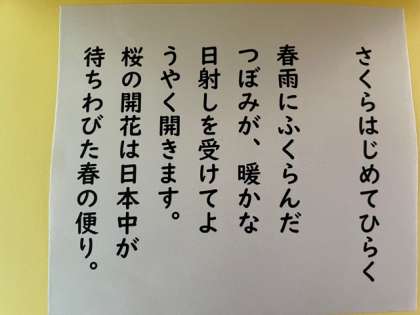 さくらはじめてひらく
春雨にふくらんだ
つぼみが、暖かな
日射しを受けてよ
うやく開きます。
桜の開花は日本中が
待ちわびた春の便り。